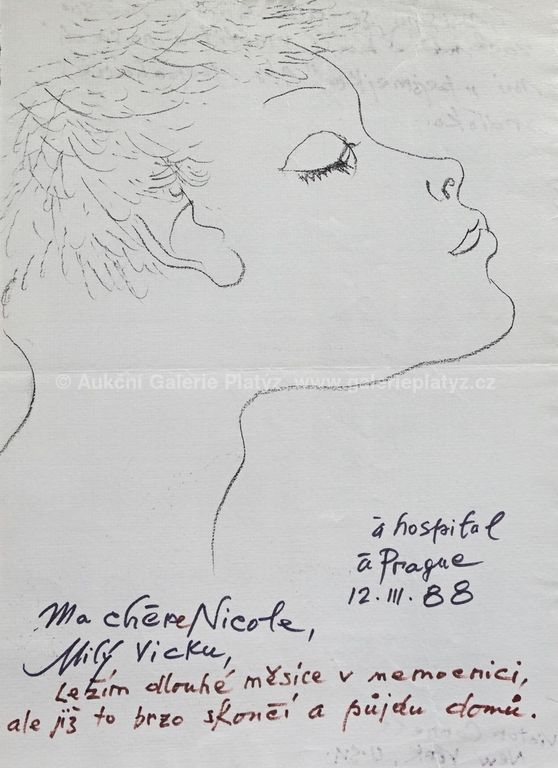 © Aukční Galerie Platýz, www.galerieplatyz.cz
à hospital
à Prague
12. III. 88
Ma chère Nicole,
Milý Vicku,
Ležím dlouhé měsíce v nemocnici,
ale již to brzo skončí a půjdu domů.